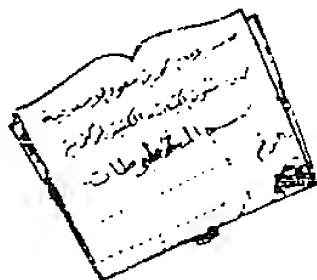 جامعة الإمام محمد بن سعود الإسلامية
عمادة شؤون المكتبات المكتبة المركزية
قسم المخطوطات